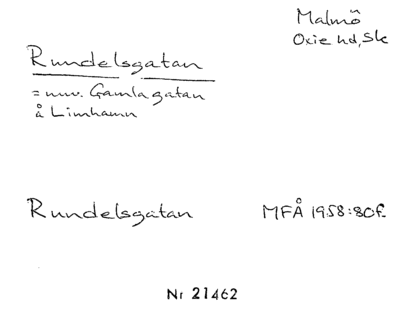 Malmö
Oxie hd, Sk
Rundelsgatan
= nuv. Gamla gatan
å Limhamn
Rundelsgatan MFÅ 1958:80f.
Nr 21462